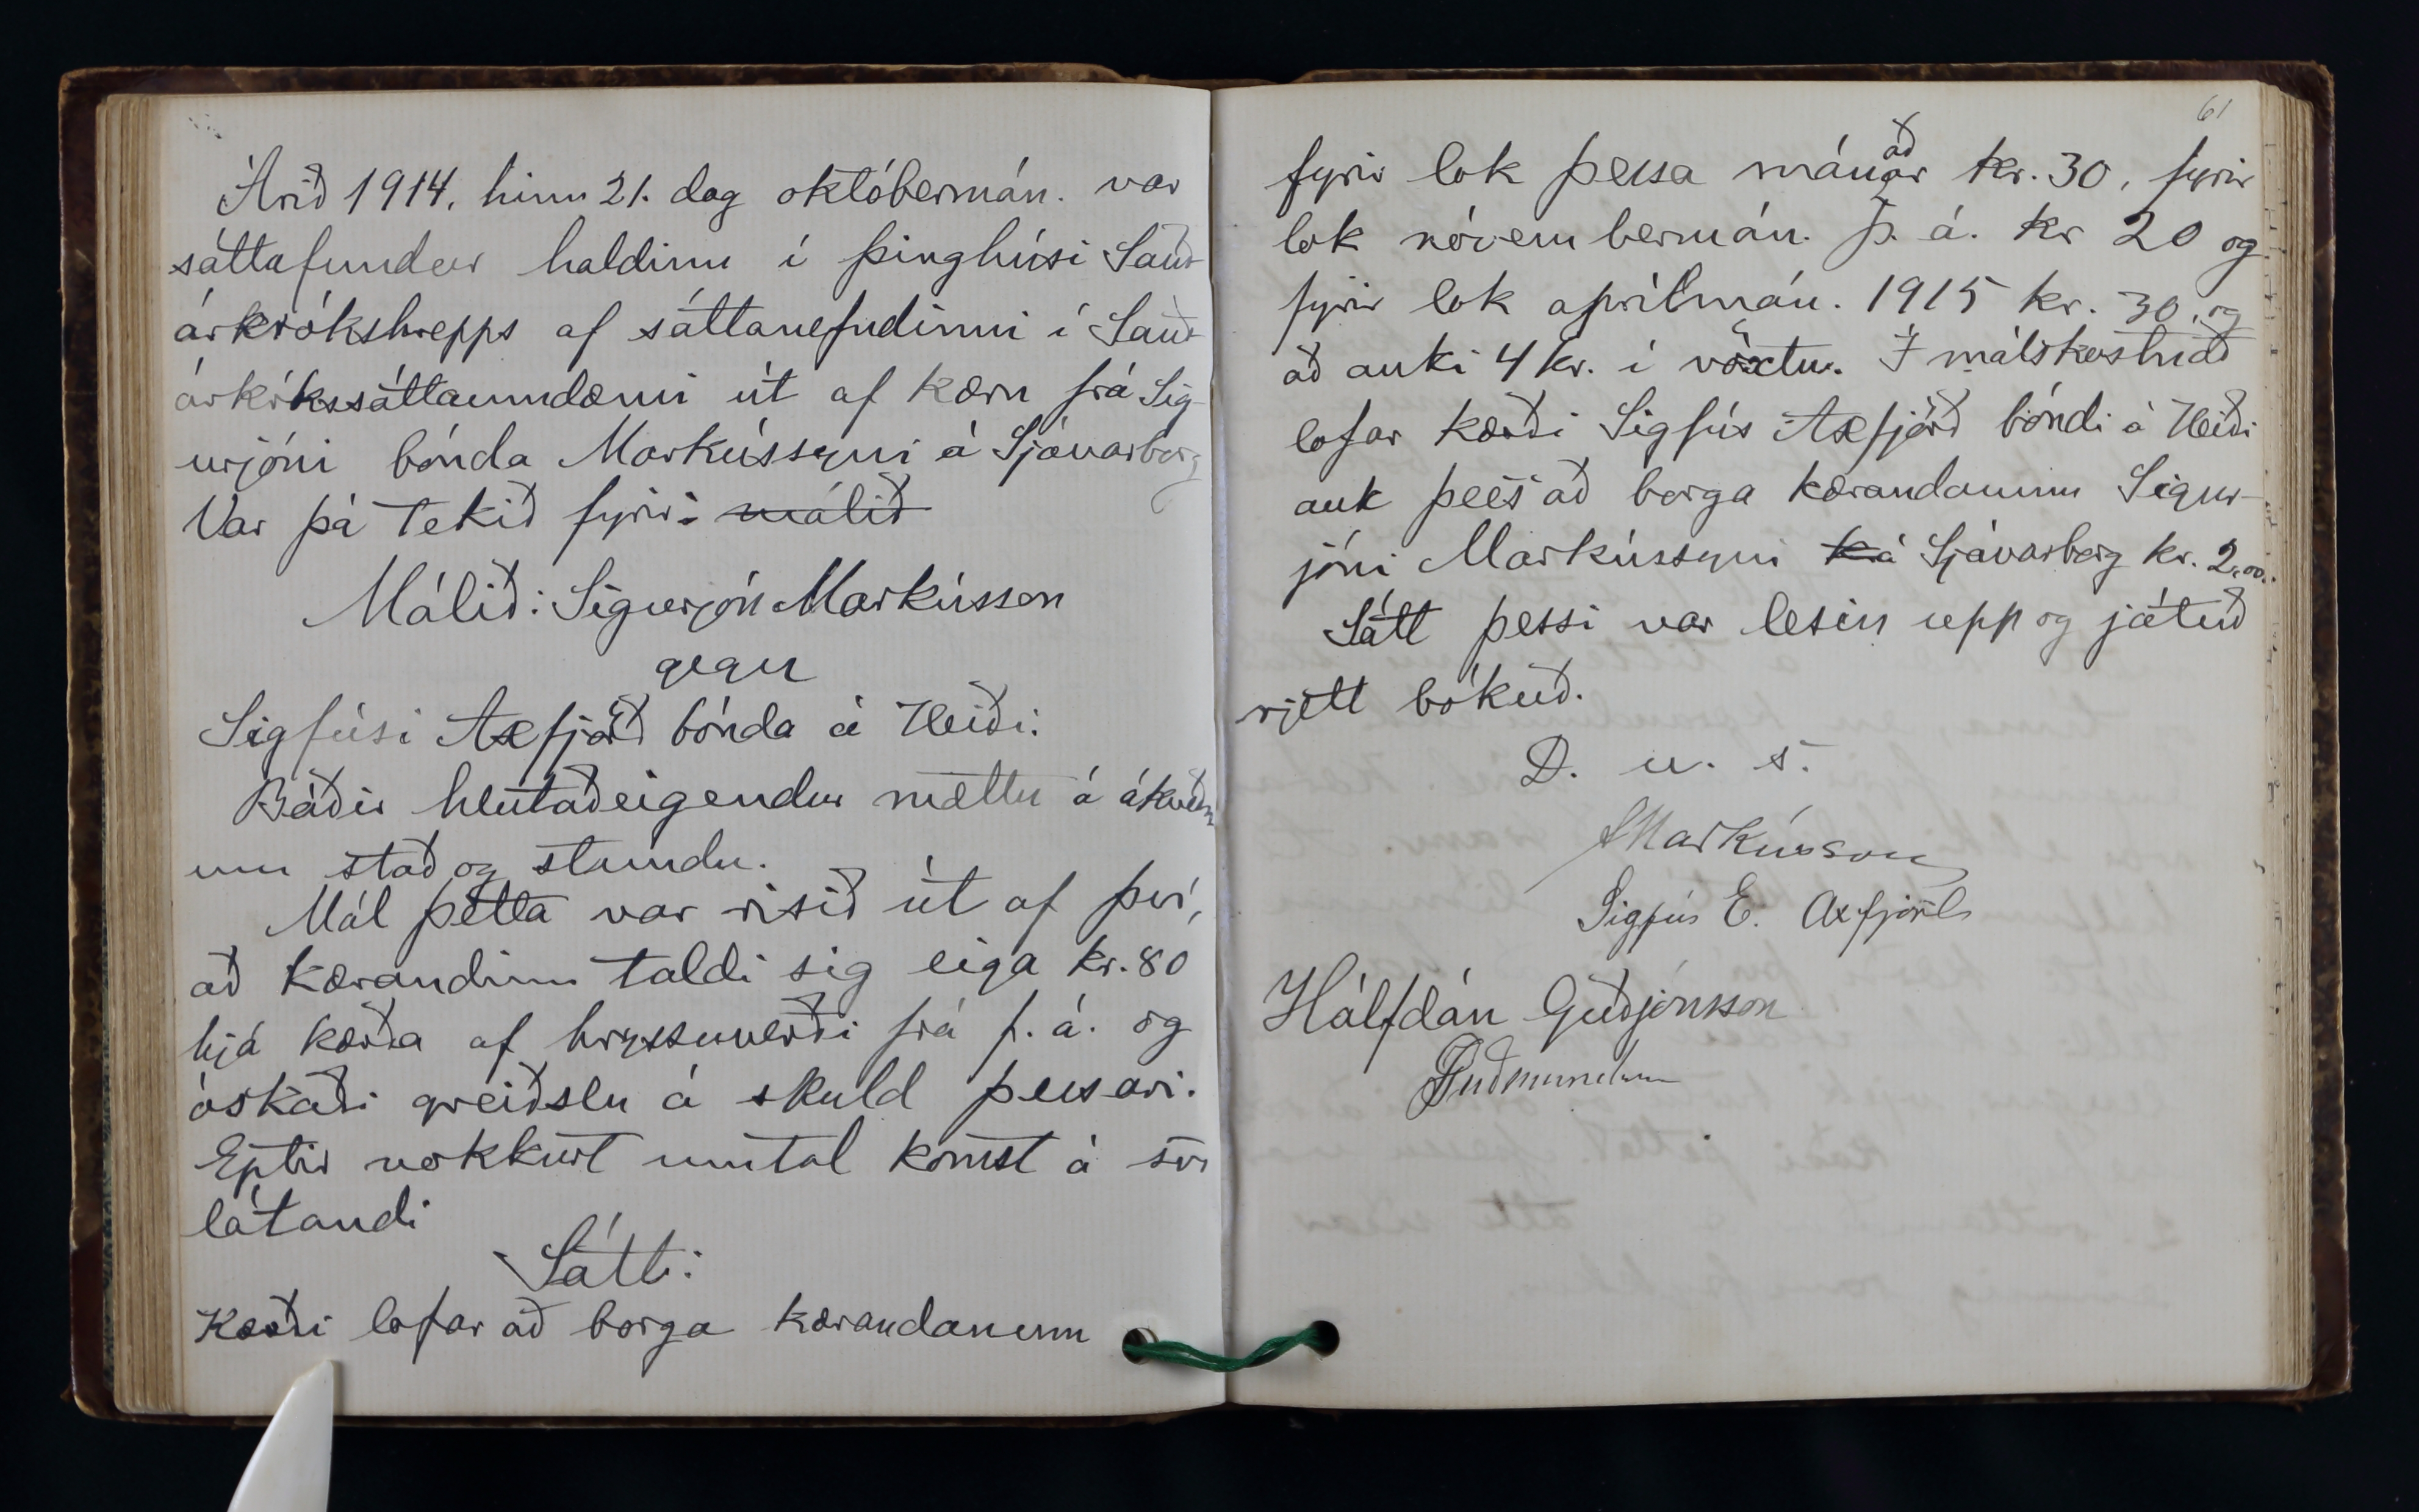 Árið 1914, hinn 21. dag októbermán. var
sáttafundur haldinn í þinghúsi Sauð-
árkrókshrepps af sáttanefndinni í Sauð-
árkrókssáttaumdæmi út af kæru frá Sig-
urjóni bónda Markússyni á Sjávarborg
Var þá tekið fyrir: málið
Málið: Sigurjón Markússon
gegn
Sigfúsi Axfjörð bónda á Heiði.
Báðir hlutaðeigendur mættu á ákveðn
um stað og stundu.
Mál þetta var risið út af því,
að kærandinn taldi sig eiga kr. 80
hjá kærða af hryssuverði frá f. á. og
óskaði greiðslu á skuld þessari.
Eptir nokkurt umtal komst á svo
látandi
Sátt:
Kærði lofar að borga kærandanum
61
fyrir lok þessa mánaðar kr. 30, fyrir
lok nóvembermán. þ. á. kr 20 og
fyrir lok aprílmán. 1915 kr. 30, og
að auki 4 kr. í vöxtu. Í málskostnað
lofar kærði Sigfús Axfjörð bóndi á Heiði
auk þess að borga kærandanum Sigur-
jóni Markússyni á Sjávarborg kr. 2,00.
Sátt þessi var lesin upp og játuð
rjett bókuð.
D. u. s.
SMarkússon
Sigfús E. Axfjörð
Hálfdán Guðjónsson